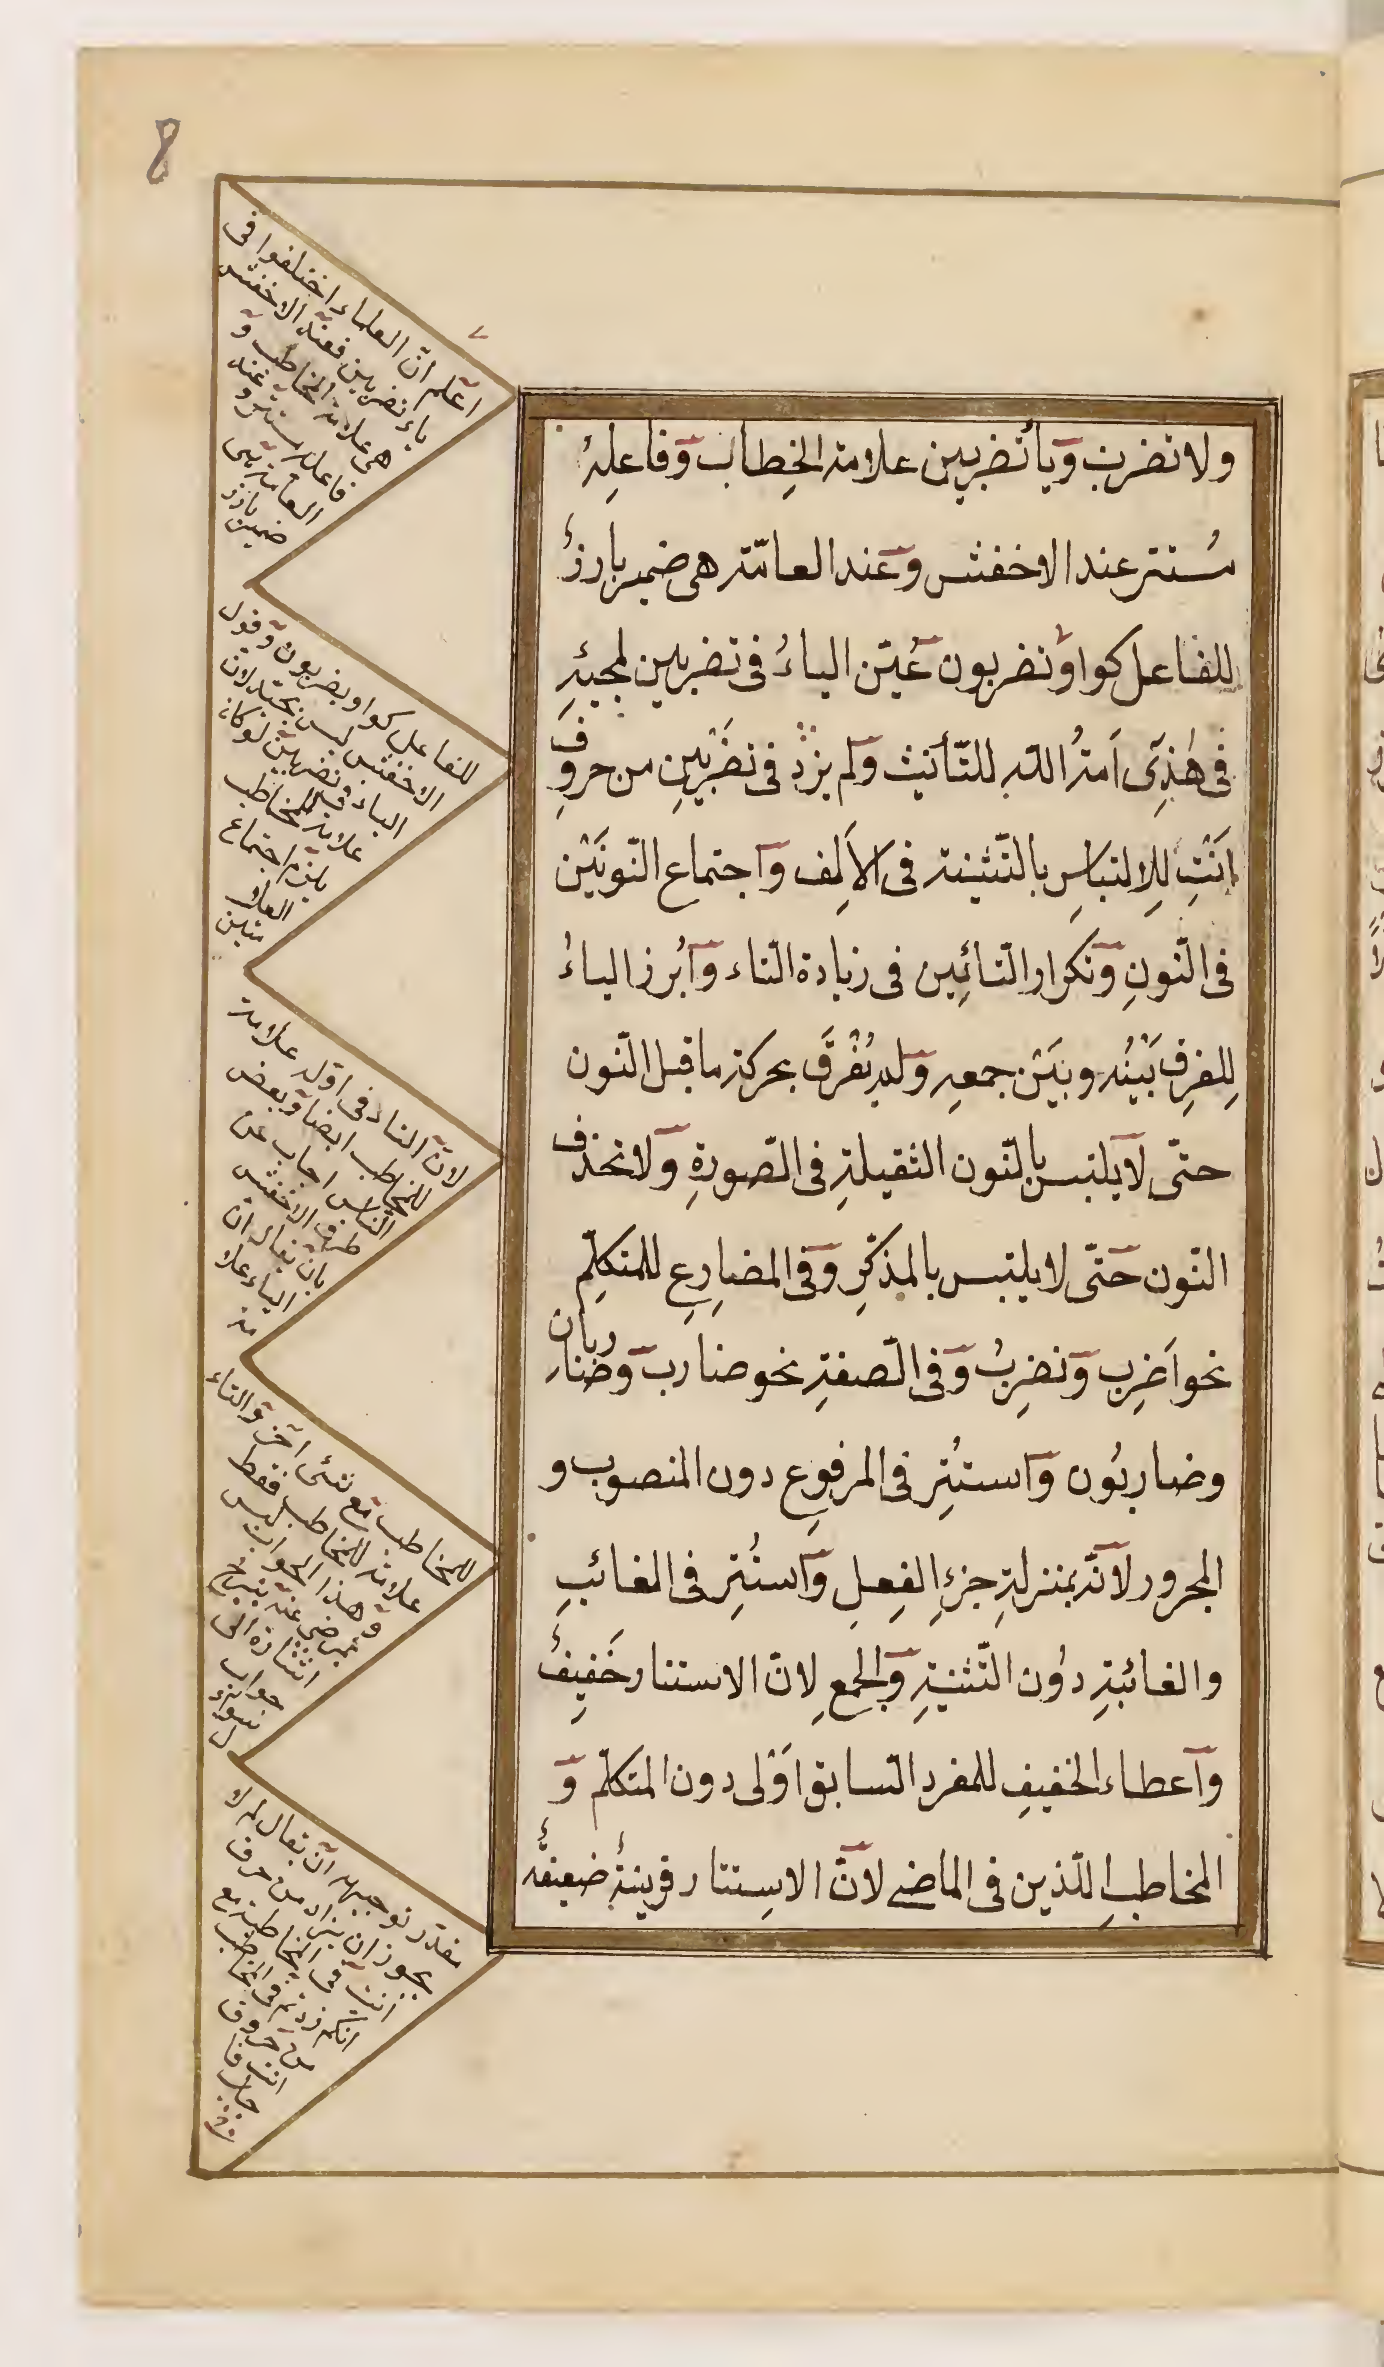 8
ولا تضربن وَيا تضربين علامة الخِطاب وَفاعلهُ
مُستتر عند الاخفش وعند العامّة هى ضمير بارزٌ
للفاعل كواو تضربون عُيّن الياءُ فى تضربين لمجيئِهِ
فى هٰذِى اَمَةُ اللّه للتّأنيث ولم يزد فى تضرَبِينِ من حروفِ
اَنْتِ لِلاِلتباسِ بالتّثنية فى الاَلِف واجتماع النّونَيْن
فى النّونِ وتكرار التّائِين فى زيادة التّاء وَاُبرز الياءُ
لِلفرقِ بَيْنُه وبَيْن جمعِه ولم يُفْرَق بحركة ما قبل النّون
حتّى لا يلتبس بالنّون الثقيلةِ فى الصّورةِ ولا تحذف
النّون حَتّى لا يلتبس بالمذكّرِ وَفى المضارِعِ للمتكلّم
نحو اَضرِب وَنضرِبُ وَفى الصّفةِ نحو ضارب وضاربان
وضاربُون وَاستُتِر فى المرفوعِ دون المنصوب و
المجرور لانّه بمنزلةِ جزءِ الفِعلِ وَاستُتِر فى الغائبِ
والغائبةِ دوُن التّثنيةِ وَالجمعِ لِانّ الاستتار خَفِيفٌ
وَاعطاء الخفيفِ للمفرد السّابق اَوْلى دون المتكلّم وَ
المخاطبِ اللّذين فى الماضى لانّ الاِستتار قرينةٌ ضعيفةٌ
اعلم انّ العلماء اختلفوا فى
ياء تضربين فعند الاخفش
هى علامة الخاطب و
فاعله مستتر و عند
العامّة هى
ضمير بارز
للفاعل كواو يضربون وقول
الاخفش ليس بجيّد لانّ
الياء فى تضربين لو كان
علامة للمخاطب
يلزم اجتماع
العلا
متين
لانّ التاء فى اوّله علامة
للمخاطب ايضا وبعض
الناس اجاب عن
طرف الاخفش
بان يقال انّ
الياء علا
مة
للمخاطب مع شئ اخر والتاء
علامة للمخاطب فقط
وهذا الجواب ليس
بمرضى عنه
اشارة الى
جواب
سؤال
مقدّر توجيهه ان يقال لم لا
يجوز ان يزاد من حرف
انت فى المخاطبة مع
انكم زدتم فى المخاطب
من حروف
انت فا
جاب